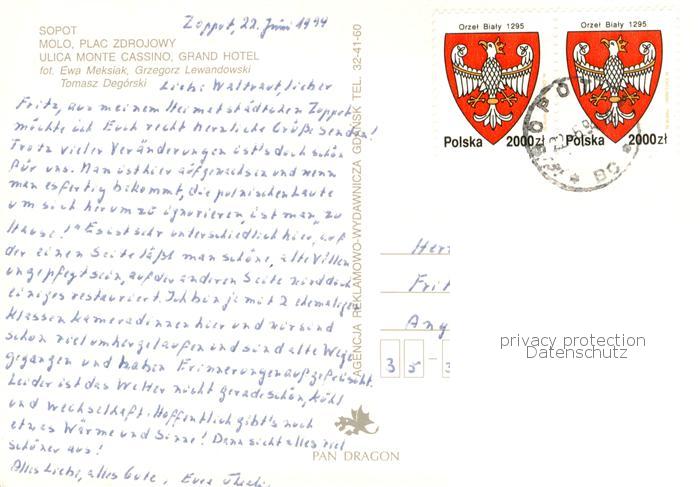 Zoppot, 22. Juni 1994
SOPOT
MOLO, PLAC ZDROJOWY
ULICA MONTE CASSINO, GRAND HOTEL
fot. Ewa Meksiak, Grzegorz Lewandowski
Tomasz Degórski
Liebe Waltraut, lieber
Fritz, aus meinem Heimatstädtchen Zoppot
möchte ich Euch recht herzliche Grüße senden!
Trotz vieler Veränderungen ist's doch schön
für uns. Man ist hier aufgewachsen und wenn
man es fertig bekommt, die polnischen Laute
um sich herum zu ignorieren, ist man "zu
Hause!" Es ist sehr unterschiedlich hier, auf
der einen Seite läßt man schöne, alte Villen
ungepflegt sein, auf der anderen Seite wird doch
einiges restauriert. Ich bin ja mit 2 ehemaligen
Klassenkameradinnen hier und wir sind
schon viel umhergelaufen und sind alte Wege
gegangen und haben Erinnerungen aufgefrischt.
Leider ist das Wetter nicht gerade schön, kühl
und wechselhaft. Hoffentlich gibt's noch
etwas Wärme und Sonne! Dann sieht alles viel
schöner aus!
Alles Liebe, alles Gute, Eure
AGENCJA REKLAMOWO-WYDAWNICZA GDYNIA TEL. 32-41-60
PAN DRAGON
Orzeł Biały 1295
Polska 2000 zł
Orzeł Biały 1295
Polska 2000 zł
SOPOT
Fri
35-3
privacy protection
Datenschutz